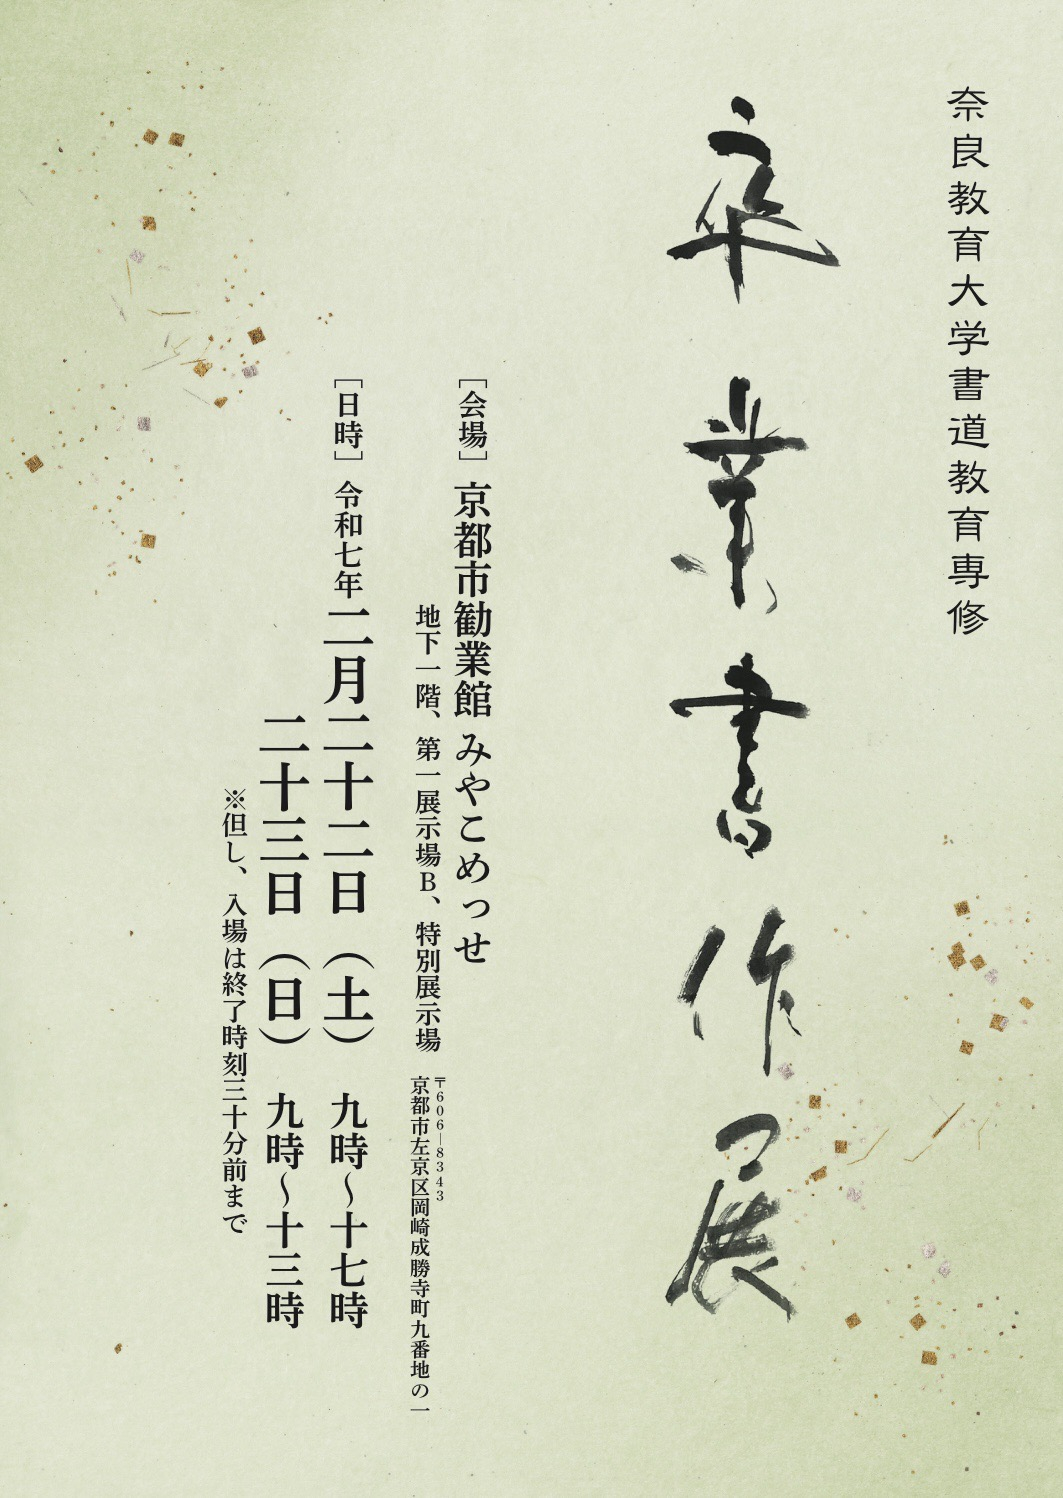 奈良教育大学書道教育専修
卒業書作展
［会場］京都市勧業館 みやこめっせ
地下一階、第一展示場B、特別展示場
〒606―8343
京都市左京区岡崎成勝寺町九番地の一
［日時］令和七年二月二十二日（土） 九時〜十七時
二十三日（日） 九時〜十三時
※但し、入場は終了時刻三十分前まで